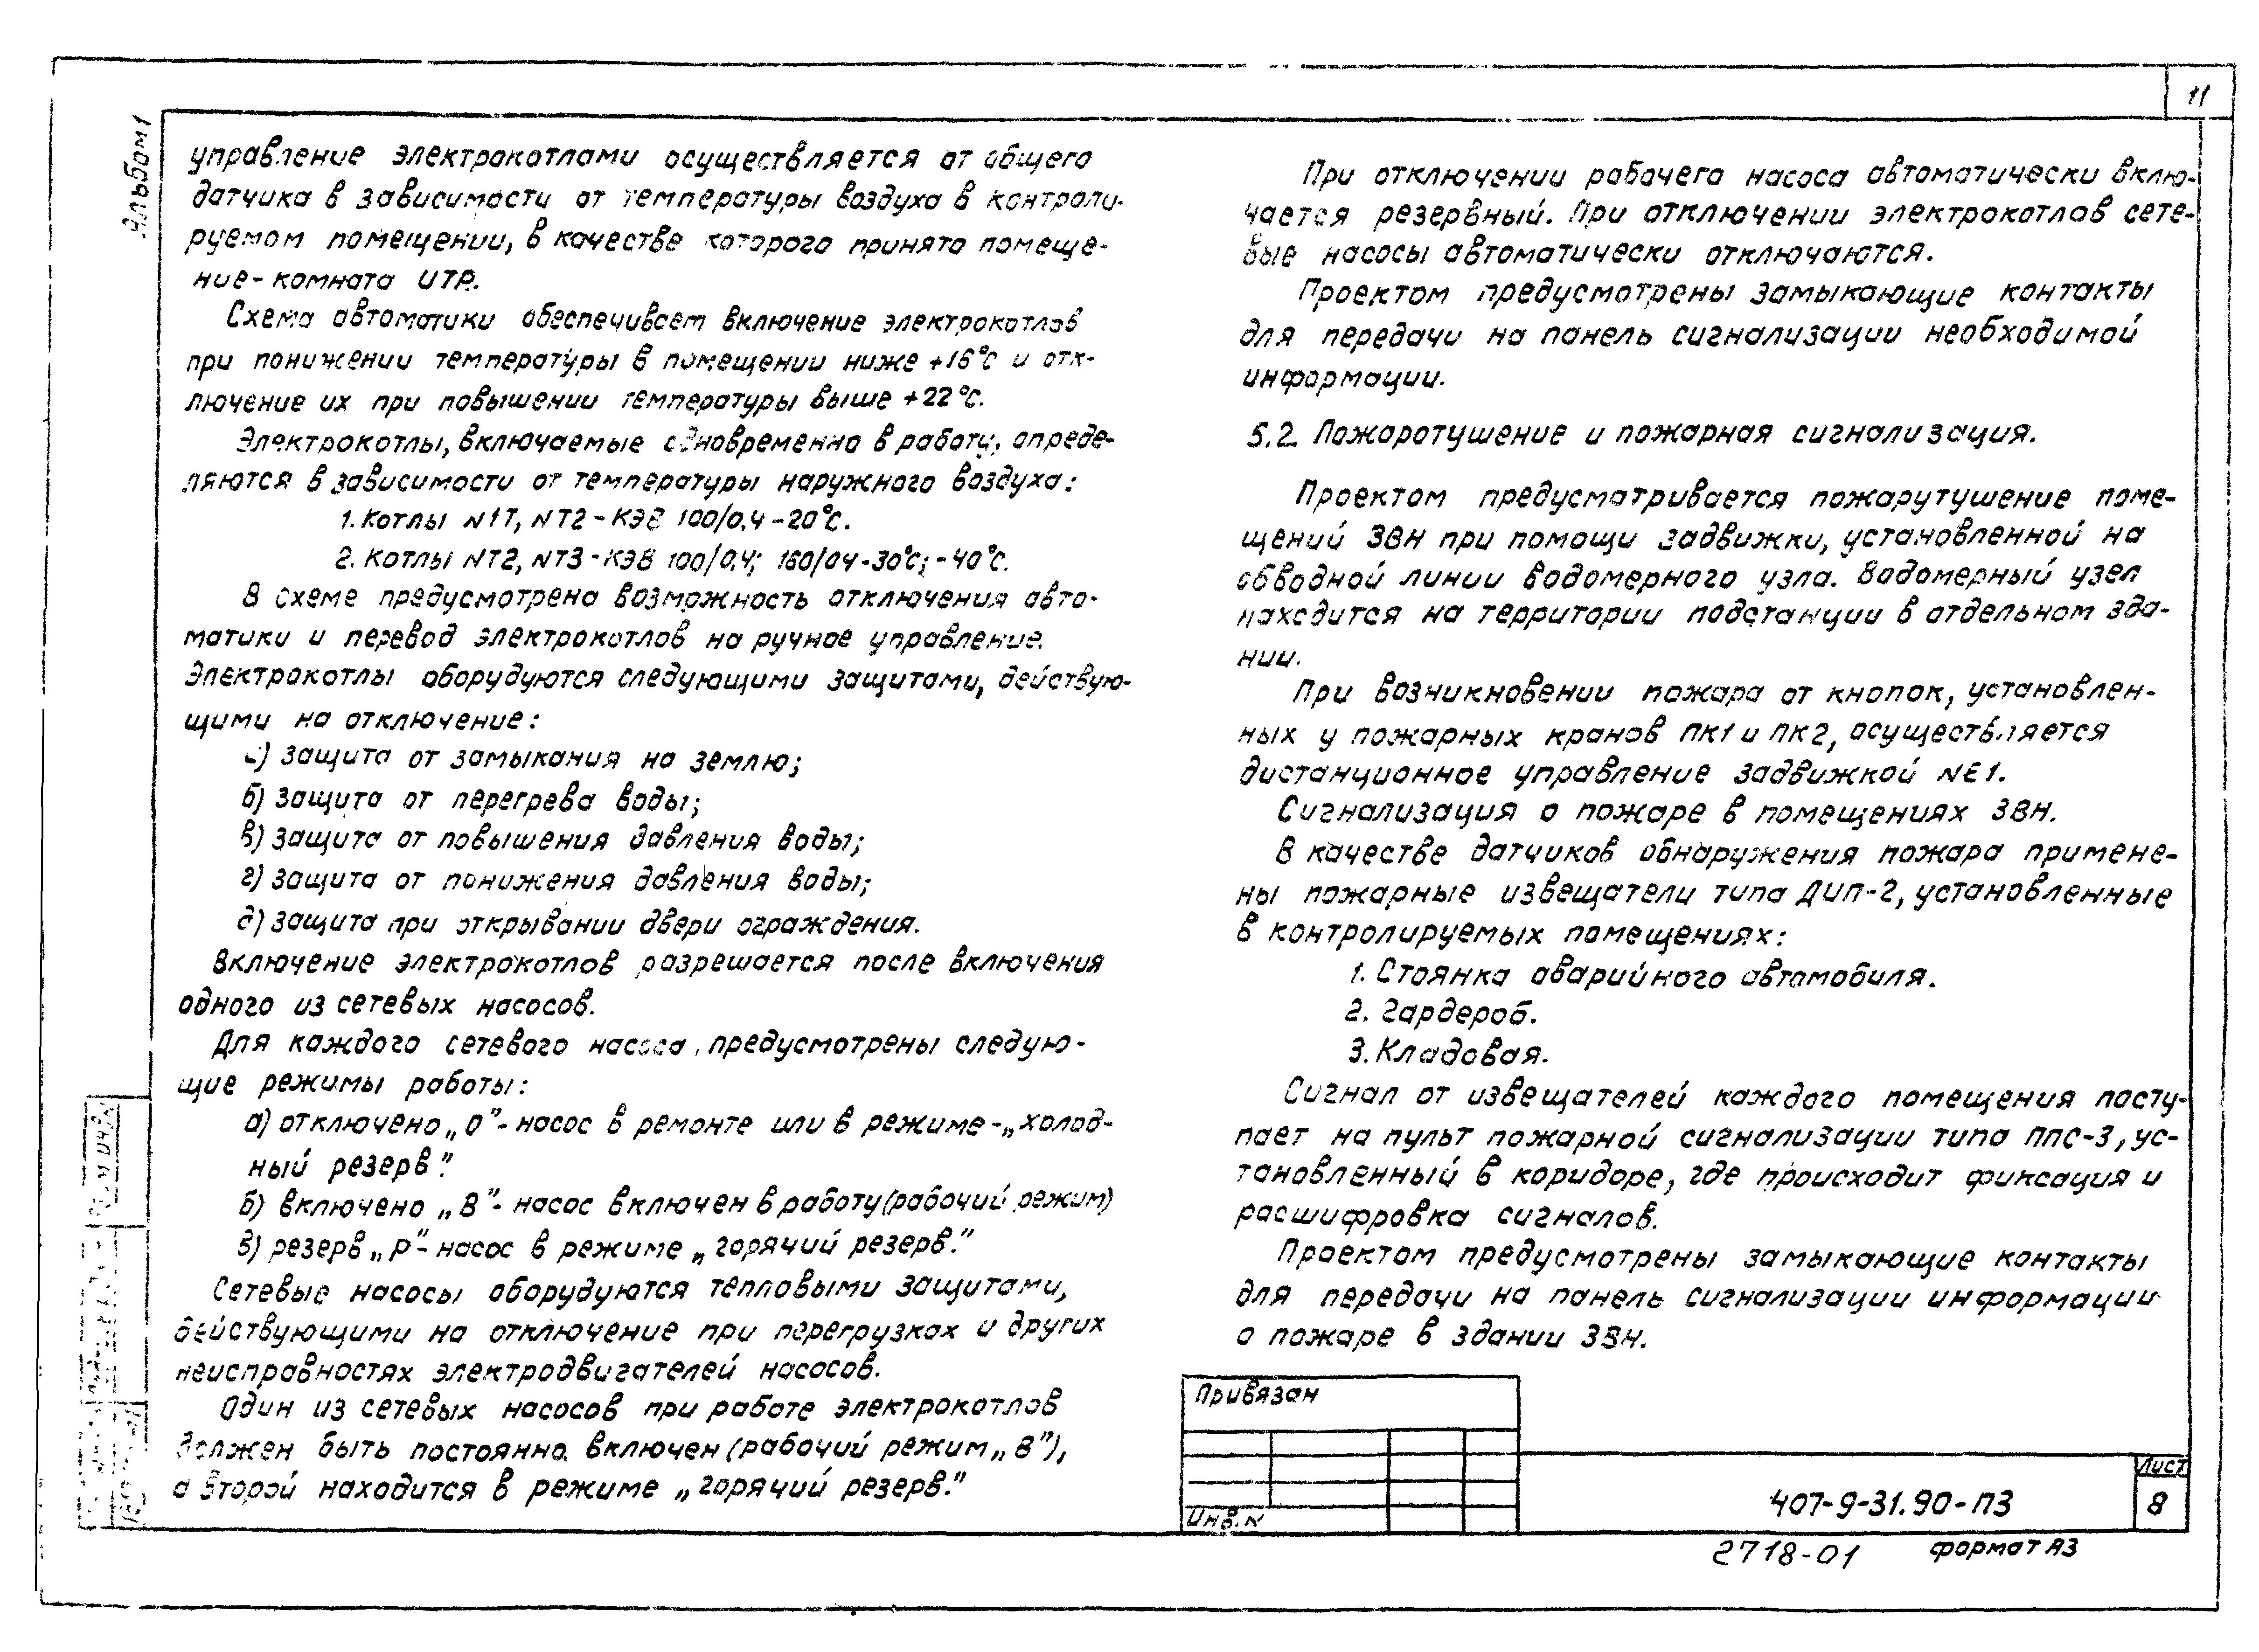 11
Альбом 1
управление электрокотлами осуществляется от общего
датчика в зависимости от температуры воздуха в контроли-
руемом помещении, в качестве которого принято помеще-
ние-комната ИТР.
Схема автоматики обеспечивает включение электрокотлов
при понижении температуры в помещении ниже +16°С и отк-
лючение их при повышении температуры выше +22°С.
Электрокотлы, включаемые одновременно в работу, опреде-
ляются в зависимости от температуры наружного воздуха:
1. Котлы N1T, NT2 - КЭВ 100/0,4 -20°С.
2. Котлы NT2, NT3 - КЭВ 100/0,4; 160/04-30°С; -40°С.
В схеме предусмотрена возможность отключения авто-
матики и перевод электрокотлов на ручное управление.
Электрокотлы оборудуются следующими защитами, действую-
щими на отключение:
а) защита от замыкания на землю;
б) защита от перегрева воды;
в) защита от повышения давления воды;
г) защита от понижения давления воды;
д) защита при открывании двери ограждения.
Включение электрокотлов разрешается после включения
одного из сетевых насосов.
Для каждого сетевого насоса предусмотрены следую-
щие режимы работы:
а) отключено „О"- насос в ремонте или в режиме -„холод-
ный резерв".
б) включено „В"- насос включен в работу (рабочий режим)
в) резерв „Р"- насос в режиме „горячий резерв."
Сетевые насосы оборудуются тепловыми защитами,
действующими на отключение при перегрузках и других
неисправностях электродвигателей насосов.
Один из сетевых насосов при работе электрокотлов
должен быть постоянно включен (рабочий режим „В"),
а второй находится в режиме „горячий резерв."
При отключении рабочего насоса автоматически вклю-
чается резервный. При отключении электрокотлов сете-
вые насосы автоматически отключаются.
Проектом предусмотрены замыкающие контакты
для передачи на панель сигнализации необходимой
информации.
5.2. Пожаротушение и пожарная сигнализация.
Проектом предусматривается пожарутушение поме-
щений ЗВН при помощи задвижки, установленной на
обводной линии водомерного узла. Водомерный узел
находится на территории подстанции в отдельном зда-
нии.
При возникновении пожара от кнопок, установлен-
ных у пожарных кранов ПК1 и ПК2, осуществляется
дистанционное управление задвижкой NE1.
Сигнализация о пожаре в помещениях ЗВН.
В качестве датчиков обнаружения пожара примене-
ны пожарные извещатели типа ДИП-2, установленные
в контролируемых помещениях:
1. Стоянка аварийного автомобиля.
2. Гардероб.
3. Кладовая.
Сигнал от извещателей каждого помещения посту-
пает на пульт пожарной сигнализации типа ППС-3, ус-
тановленный в коридоре, где происходит фиксация и
расшифровка сигналов.
Проектом предусмотрены замыкающие контакты
для передачи на панель сигнализации информации
о пожаре в здании ЗВН.
Привязан
Инв. N
407-9-31.90-ПЗ
Лист
8
2718-01 формат А3